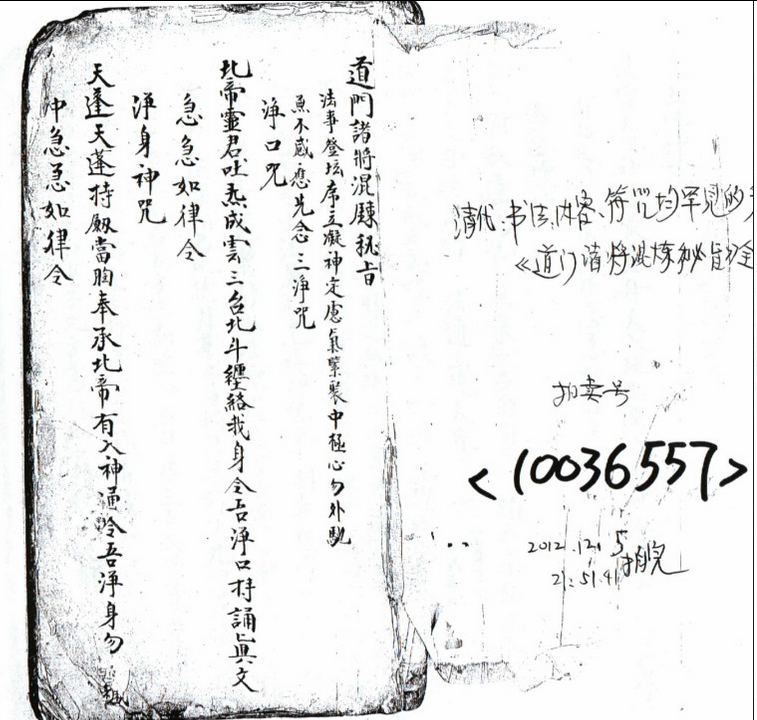 道門諸將混錬秘旨
法事登坛席立凝神定慮氣聚中極心勿外馳
無不感應先念三淨咒
淨口咒
北帝靈君吐炁成雲三台北斗纏絡我身令吾淨口持誦真文
急急如律令
淨身神咒
天蓬天蓬持劔當胸奉承北帝有入神通 吾淨身勿
急急如律令
清代.书法.内容.符咒均罕见的
《道门诸将混炼秘旨全
拍卖号
<10036557>
2012.12.5
21:51.41